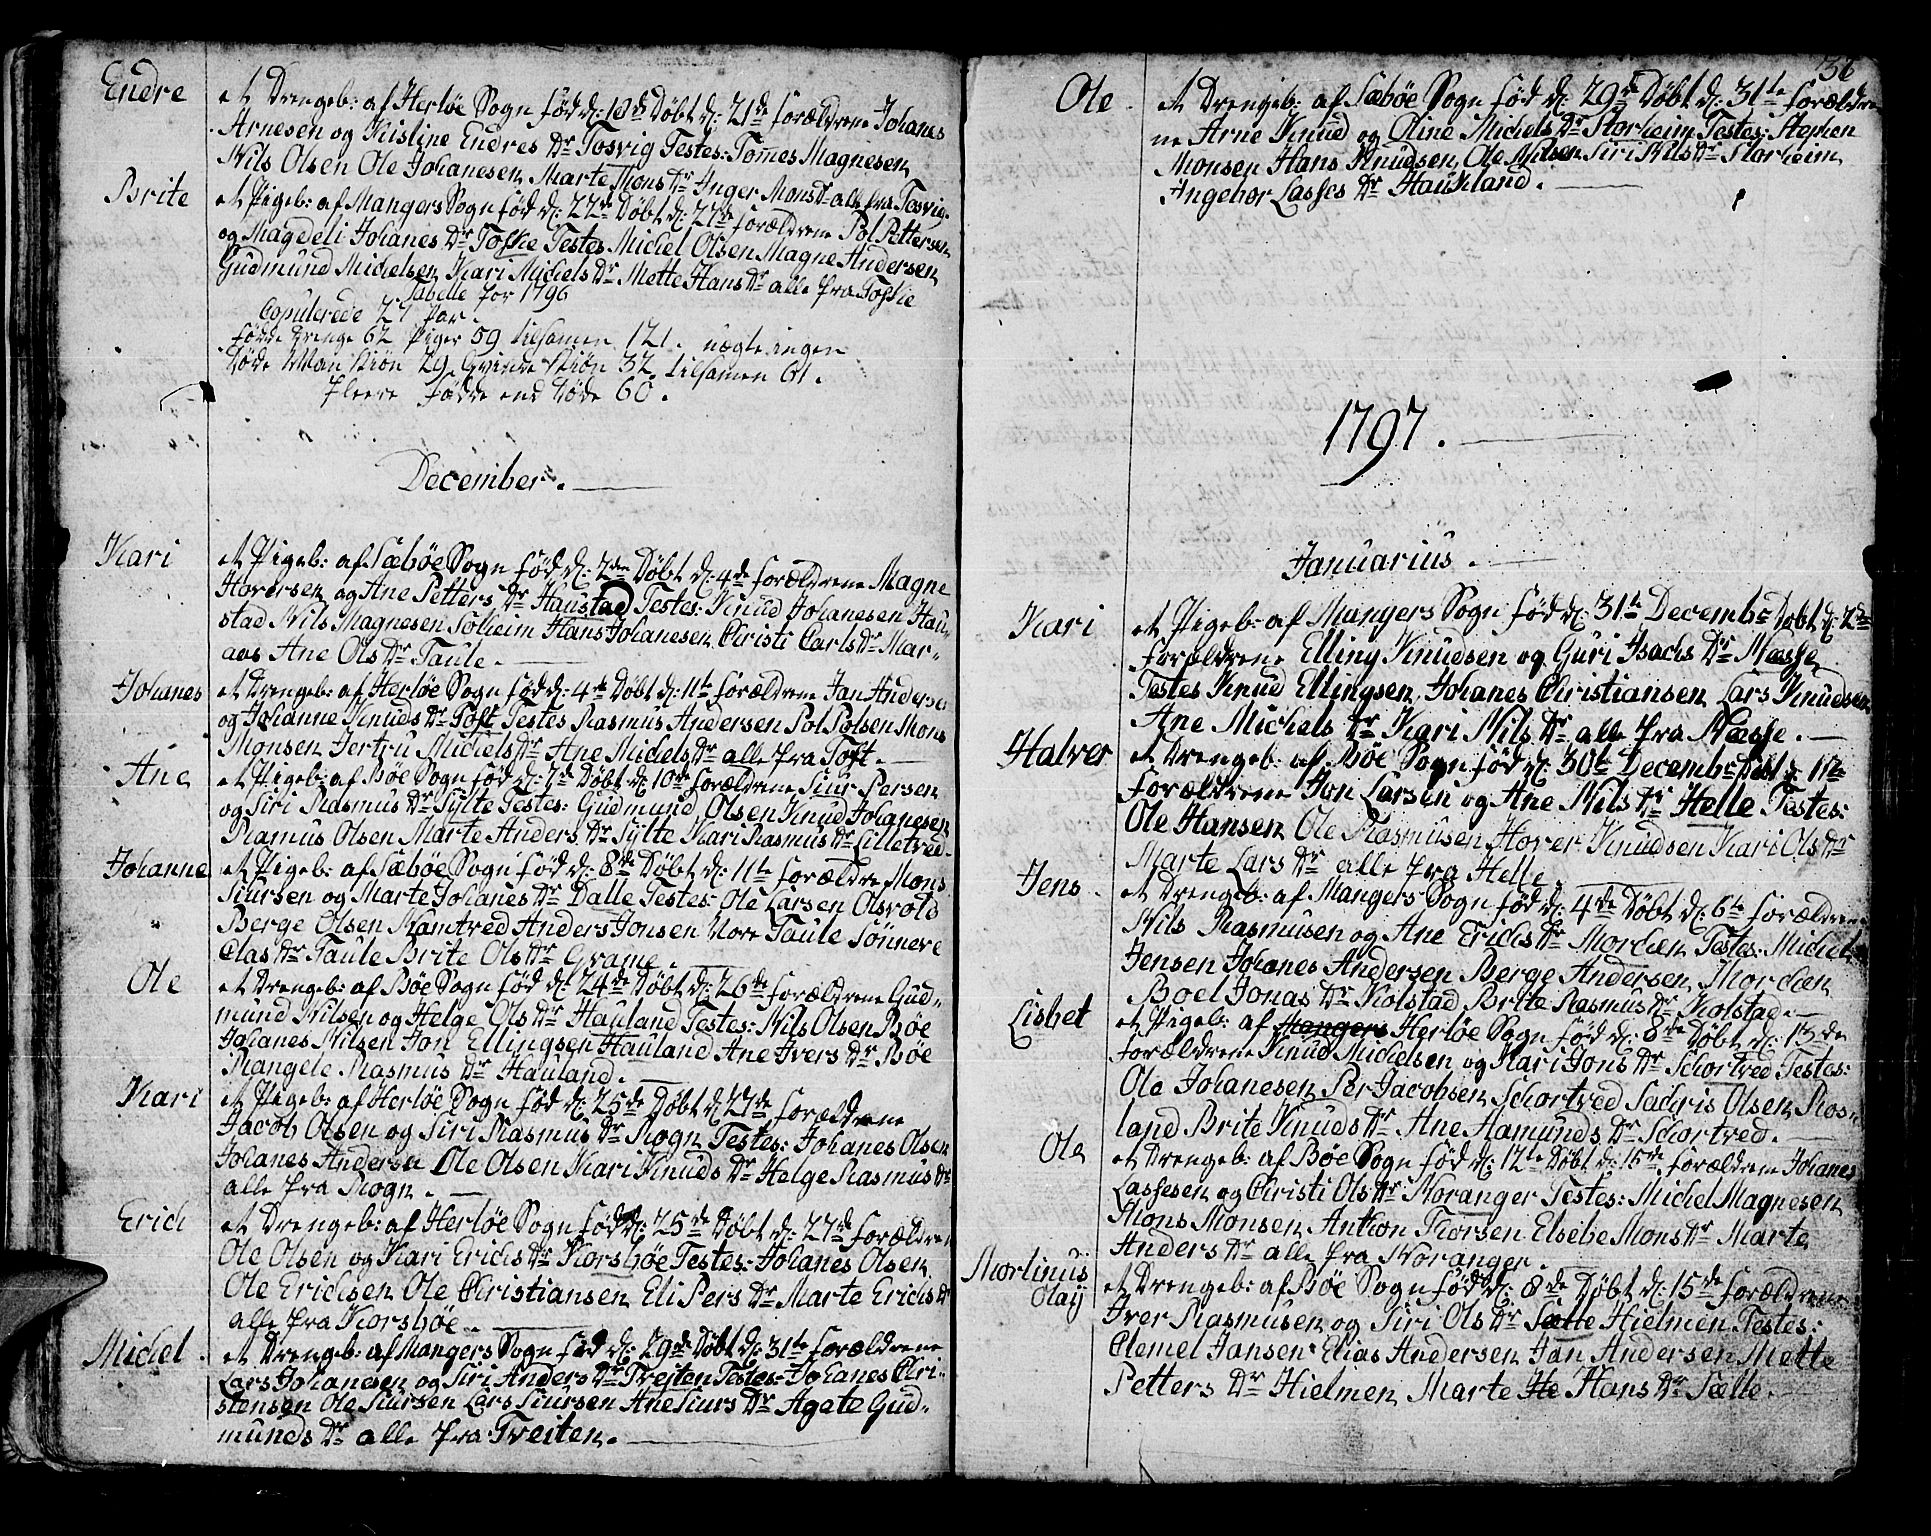 Endre et Drengeb: af Herløe Sogn fød d: 18de Døbt d: 21de forældrene Johanes
Arnesen og Kristine Endres Dr Tosvig Testes: Tomes Magnesen
Nils Olsen Ole Johanesen Marte Mons Dr Anger Mons Dr alle fra Tosvig.
Brite et Pigeb: af Mangers Sogn fød d: 22de Døbt d: 27de forældrene Pol Pettersen
og Magdeli Johanes Dr Toske Testes Michel Olsen Magne Andersen
Gudmund Michelsen Kari Michels Dr Mette Hans Dr alle fra Toske
Tabelle for 1796
Copulerede 27 Par.
Fødde Drenge 62 Piger 59 tilsamen 121. uægte ingen
Døde Man Kiøn 29 Qvinde Kiøn 32 tilsamen 61.
fleere fødde end døde 60.
December.
Kari et Pigeb: af Sæbøe Sogn fød d: 2den Døbt d: 4de forældrene Magne
Haversen og Ane Petters Dr Haustad Testes: Knud Johanesen Hau-
stad Nils Magnesen Solheim Hans Johanesen Christi Carls Dr Mar-
aas Ane Ols Dr Taule.
Johanes et Drengeb: af Herløe Sogn fød d: 4de Døbt d: 11te forældrene Jan Andersen
og Johanne Knuds Dr Toft Testes Rasmus Andersen Pol Polsen Mons
Monsen Jertru Michels Dr Ane Michels Dr alle fra Toft.
Ane et Pigeb: af Bøe Sogn fød d: 7de Døbt d: 10de forældrene Siur Persen
og Siri Rasmus Dr Sylte Testes: Gudmund Olsen Knud Johanesen
Rasmus Olsen Marte Anders Dr Sylte Kari Rasmus Dr Lilletved.
Johanne et Pigeb: af Sæbøe Sogn fød d: 8de Døbt d: 11te forældre Mons
Siursen og Marte Johanes Dr Dalle Testes: Ole Larsen Olsvold
Berge Olsen Kamtred Anders Jonsen Nore Taule Sønneve
Clas Dr Taule Brite Ols Dr Grame.
Ole et Drengeb: af Bøe Sogn fød d: 24de Døbt d: 26de forældrene Gud-
mund Nilsen og Helge Ols Dr Hauland Testes: Nils Olsen Bøe
Johanes Nilsen Jon Ellingsen Hauland Ane Ivers Dr Bøe
Rangele Rasmus Dr Hauland.
Kari et Pigeb: af Herløe Sogn fød d: 25de Døbt d: 27de forældrene
Jacob Olsen og Siri Rasmus Dr Rogn Testes: Johanes Olsen
Johanes Andersen Ole Olsen Kari Knuds Dr Helge Rasmus Dr
alle fra Rogn.
Erich et Drengeb: af Herløe Sogn fød d: 25de Døbt d: 27de forældren
Ole Olsen og Kari Erichs Dr Korsbøe Testes: Johanes Olsen
Ole Erichsen Ole Christiansen Eli Pers Dr Marte Erichs Dr
alle fra Korsbøe.
Michel. et Drengeb: af Mangers Sogn fød d: 29de Døbt d: 31te forældrene
Lars Johanesen og Siri Anders Dr Treiten Testes: Johanes Chri-
stensen Ole Siursen Lars Siursen Ane Siurs Dr Agate Gud-
munds Dr alle fra Treiten.
36
Ole et Drengeb: af Sæbøe Sogn fød d: 29de Døbt d: 31te forældre
ne Arne Knud og Oline Michels Dr Storheim Testes: Stephen
Monsen Hans Knudsen Ole Nilsen Siri Nils Dr Storheim
Angebor Lasses Dr Haukland.
1797.
Januarius.
Kari et Pigeb: af Mangers Sogn fød d: 31te Decembr Døbt d: 2den
forældrene Elling Knudsen og Guri Isachs Dr Næsse
Testes Knud Ellingsen Johanes Christiansen Lars Knudsen
Ane Michels Dr Kari Nils Dr alle fra Næsse.
Halver et Drengeb: af Bøe Sogn fød d: 30te Decembr Døbt d: 11te
forældrene Jon Larsen og Ane Nils Dr Helle Testes:
Ole Hansen Ole Rasmusen Haver Knudsen Kari Ols Dr
Marte Lars Dr alle fra Helle.
Jens. et Drengeb: af Mangers Sogn fød d: 4de Døbt d: 6te forældrene
Nils Rasmusen og Ane Erichs Dr Morchen Testes: Michel
Jensen Johanes Andersen Berge Andersen Morchen
Boel Jonas Dr Kolstad Brite Rasmus Dr Kolstad.
Lisbet et Pigeb: af Mangers Herløe Sogn fød d: 8de Døbt d: 13de
forældrene Knud Michelsen og Kari Jons Dr Schortred Testes:
Ole Johanesen Per Jacobsen Schortred Sachris Olsen Ros-
land Brite Knuds Dr Ane Amunds Dr Schortred.
Ole et Drengeb: af Bøe Sogn fød d: 12te Døbt d: 15de forældrene Johanes
Lassesen og Christi Ols Dr Noranger Testes: Michel Magnesen
Mons Monsen Anthon Thorsen Elsebe Mons Dr Marte
Anders Dr alle fra Noranger.
Mortinus
Olaij et Drengeb: af Bøe Sogn fød d: 8de Døbt d: 15de forældrene
Iver Rasmusen og Siri Ols Dr Sætte Hielmen Testes:
Clemet Jansen Elias Andersen Jan Andersen Mette
Petters Dr Hielmen Marte He Hans Dr Sælle.